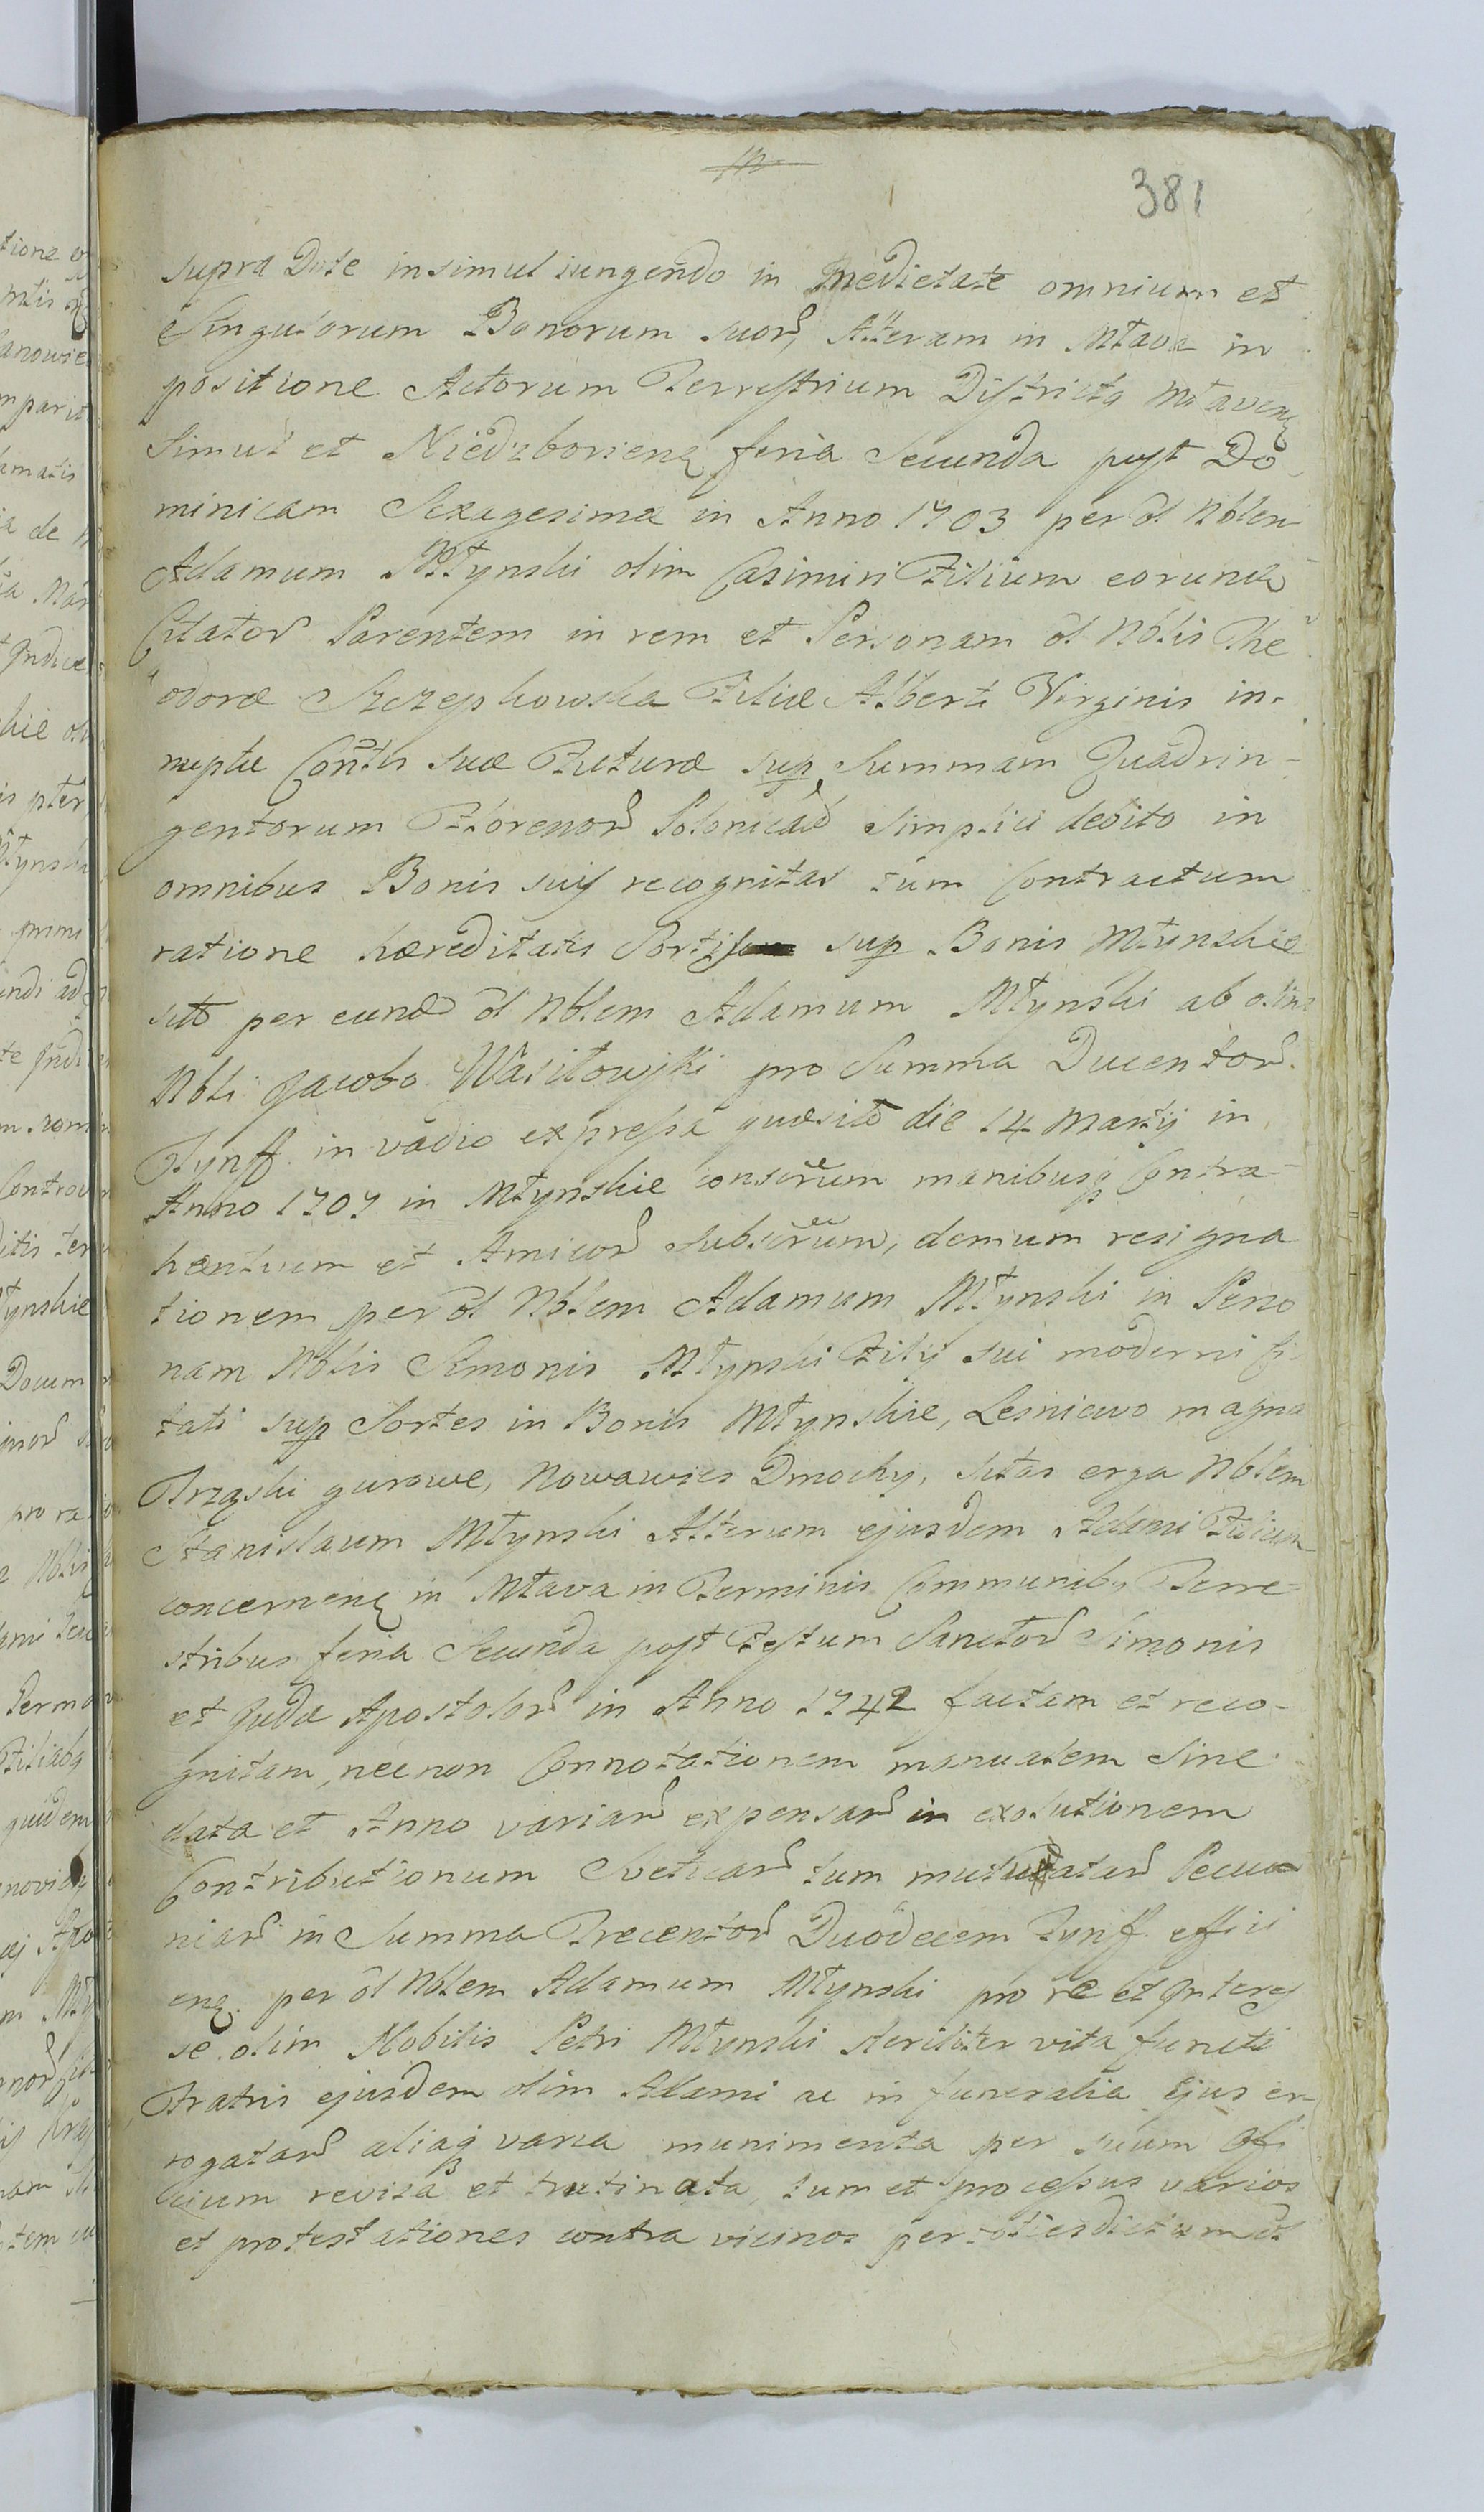 381
supra Dote insimul iungendo in Medietate omnium et
Singulorum Bonorum suor, Alteram in Mława in
positione Actorum Terrestrium Districtq Młavenę
Simul et Niedzborienę feria Secunda post Do
minicam Sexagesimæ in Anno 1703 per ol Nblem
Adamum Młynski olim Casimiri Filium eorund
Citator Parentem in rem et Personam ol Nblis The
odoræ Szczepkowska Filiæ Alberti Virginis in-
nuptæ Contis suæ Futuræ sup Summam Quadrin-
gentorum Florenor Polonicad simplici debito in
omnibus Bonis suis recognitas tum Contractum
ratione hæreditatis Sortis sup Bonis Młynskie
sito per eund ol Nblem Adamum Młynski ab olim
Nbli Jacobo Wasiłowski pro Summa Ducentor
Tynff. in vadio expressa quæsito die 14 Martij in
Anno 1707 in Młynskie conscrum manibusq Contra-
hentium et Amicor subscrum, demum resigna
tionem per ol Nblem Adamum Młynski in Perso
nam Nblis Simonis Młynski Filij sui moderni Ci
tati sup Sortes in Bonis Młynskie, Lesniewo magna
Trząski gurowe, Nowawies Dmochy, sitas erga Nblem
Stanislaum Młynski Alterum ejusdem Adami Filium
concernenę in Mława in Terminis Communibq Terre-
stribus feria Secunda post Festum Sanctor Simonis
et Judæ Apostolor in Anno 1742 factam et reco-
gnitam, nec non Connotationem manualem Sine
data et Anno variar expensar in exolutionem
Contributionum Sveticar tum mutuatar Pecu
niar in Summa Trecentor Duodecem Tynff effici
enę. per ol Nblem Adamum Młynski pro re et Interes
se olim Nobilis Petri Młynski steriliter vita functi
Fratris ejusdem olim Adami ac in funeralia Ejus er-
rogatar aliaq varia munimenta per suum Offi
cium revisa et trutinata, tum et processus varios
et protestationes contra vicinos per toties dictum ol